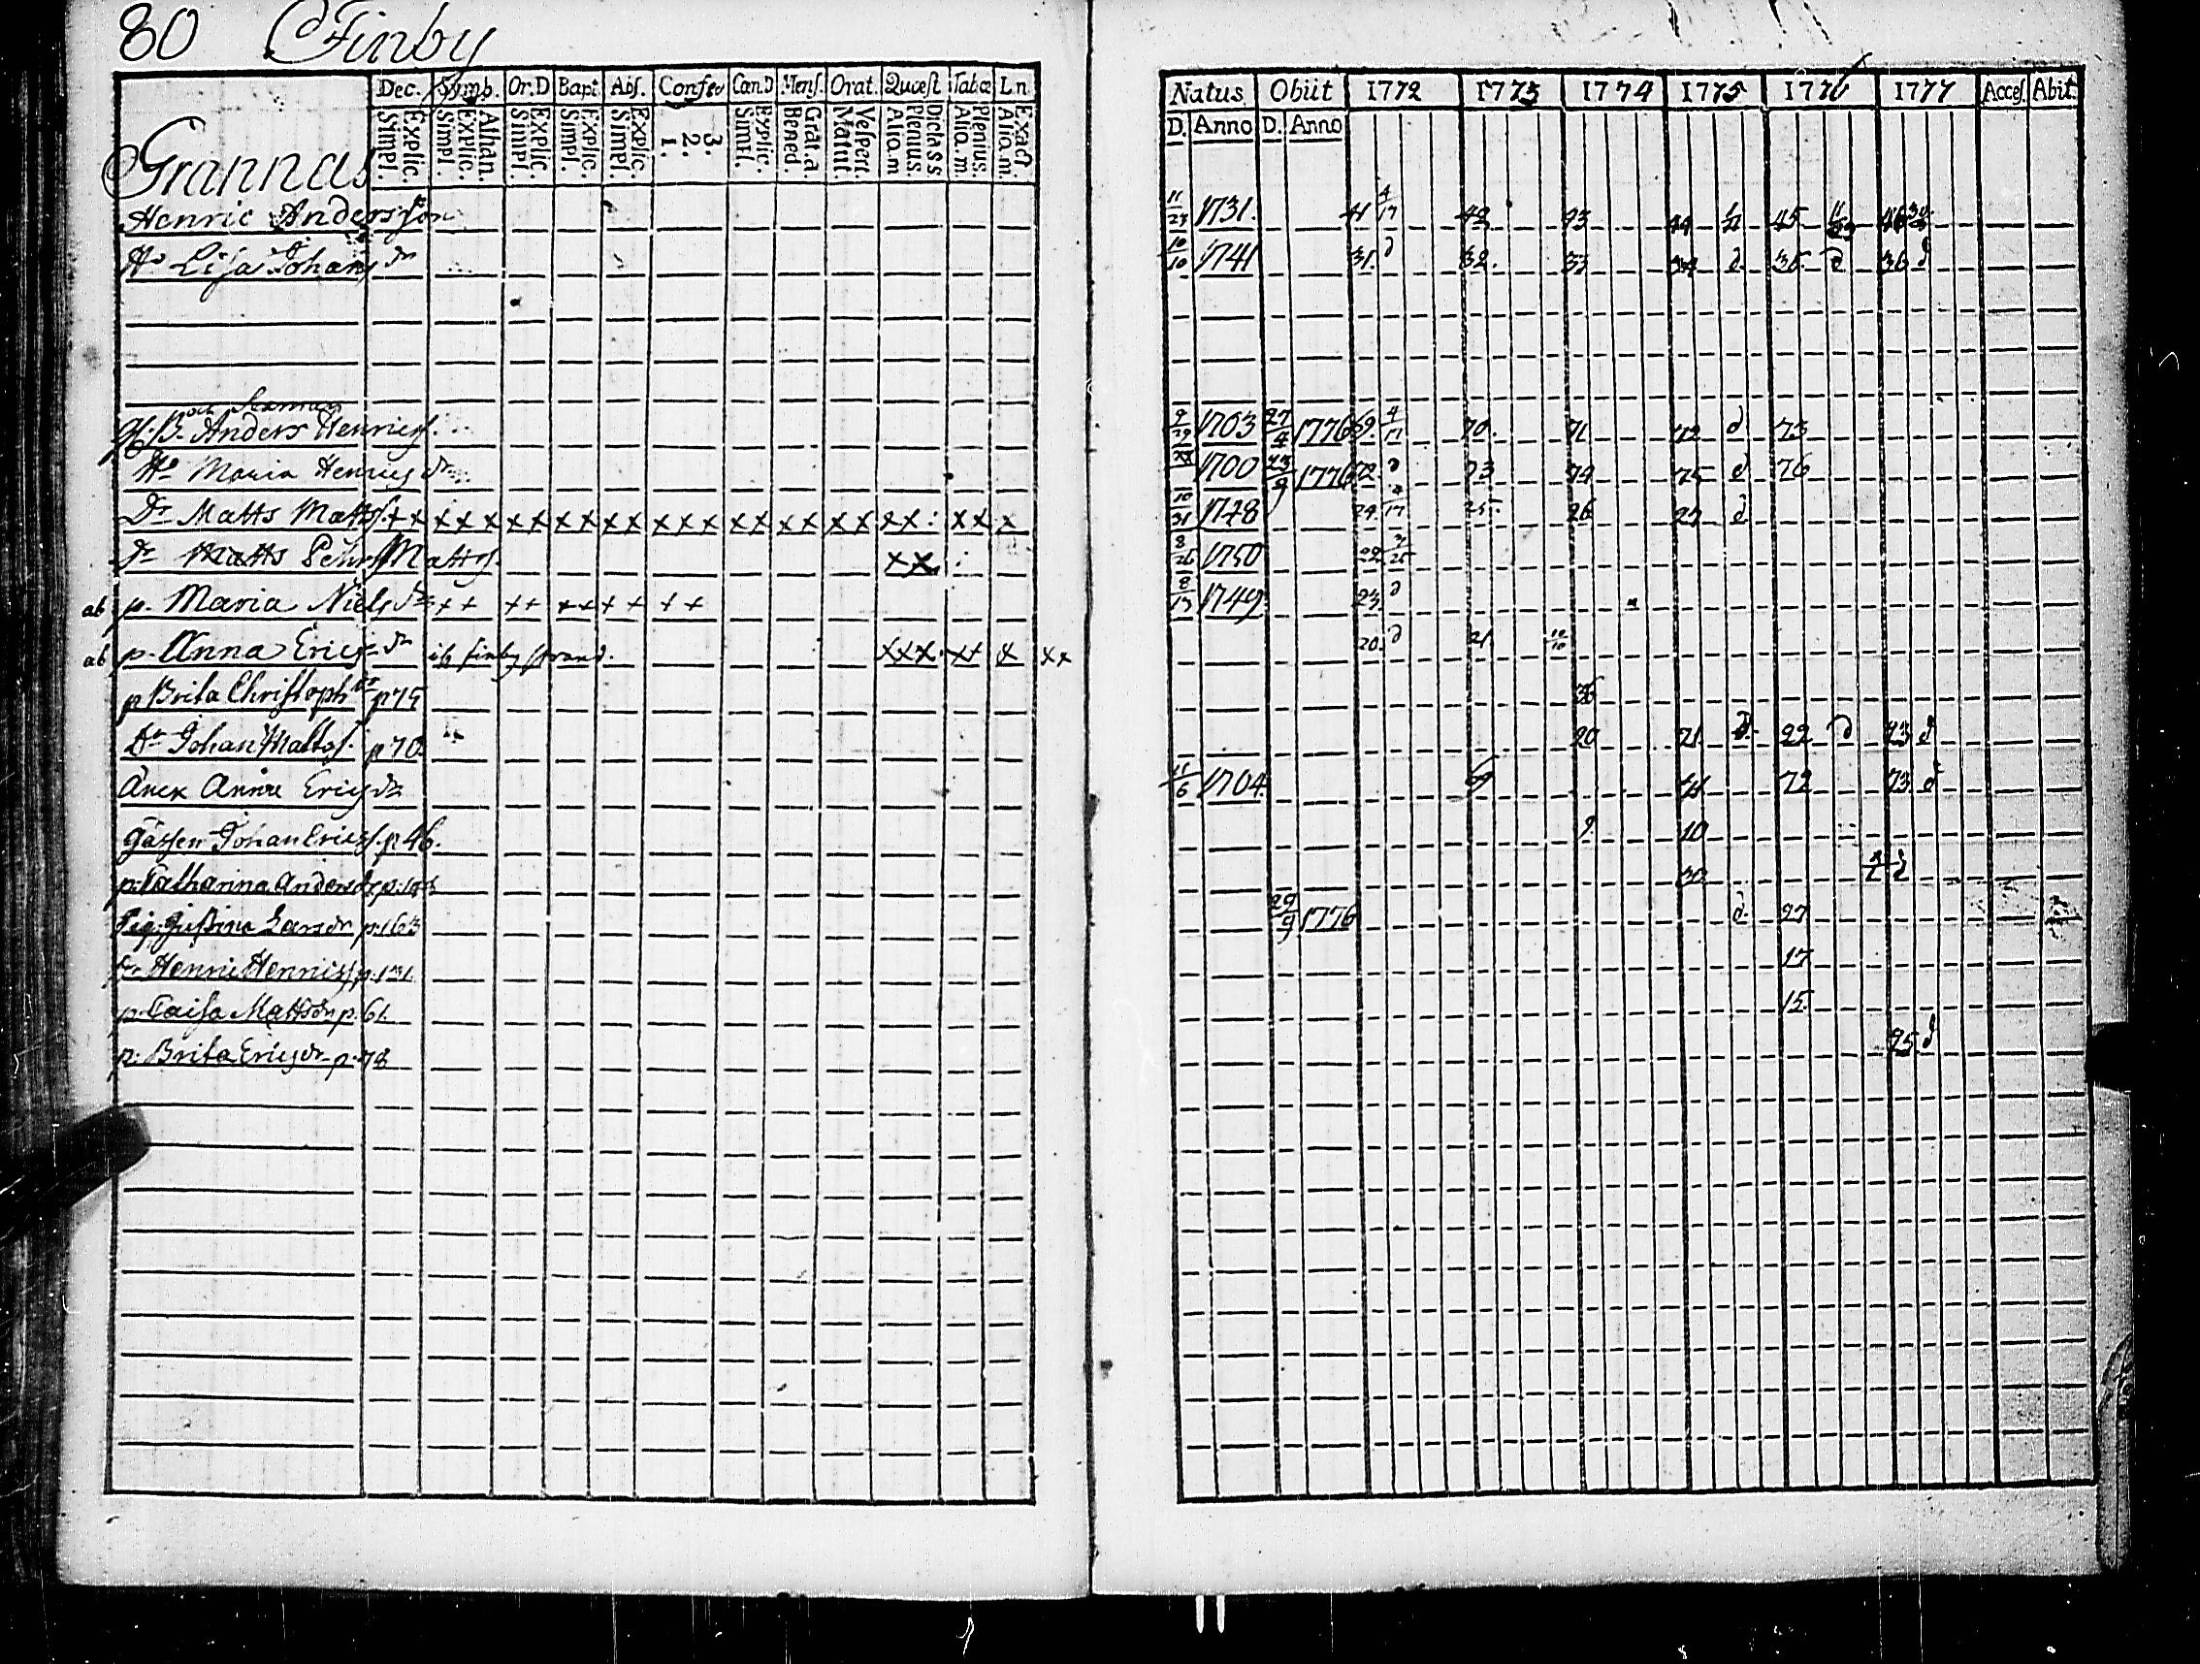 80 Finby
Dec. Symb. Or.D Bapt. Abs. Confes Can D Mens. Orat. Quæst Tabæ Ln.
Simpl. Explic. Simpl. Explic. Athan. Simpl. Explic. Simpl. Explic. Simpl. Explic. 1. 2. 3. Simpl. Explic. Bened. Grat.a. Matut. Vesperi. Alio.m Plenius. Dictass Alio.m. Plenius. Alio.m. Exact.
Grannas
Henric Andersson
H° Lisa Johans dr
Anders Henrics.
H° Maria Henrics dr
Dr Matts Matts. x x x x x x x x x x x x x x x x x x x x x x x : x x x
Dr Matts Pehrs Matts. x x :
ab p. Maria Niels dr + + + + + + + + + +
ab p. Anna Erics dr finby strand. x x x. x x x x x
p Brita Christoph dr p 75
Dr Johan Matts. p 70.
Anna Erics dr
Gossen Johan Erics. p. 46.
p. Catharina Anders dr p.
Pig. Lars dr p. 163
dr Henric Henrics p. 131
p. Caisa Matts dr p. 61.
p. Brita Erics dr p. 78
Natus Obiit 1772 1773 1774 1775 1776 1777 Acces. Abit.
D. Anno D. Anno
11/23 1731. 41 4/17 42 43 44 45 46
10/10 1741 31. d 32. 33 34 d. 35. d 36 d
9/29 1703 27/4 1776 69 4/17 70. 71 72 d 73
1700 1776 72. d 73 74 75 d 76
10/31 1748 24. 4/17 25. 26 27 d.
8/26 1750 22
8/13 1749. 23. d
20. d 21.
36
20 21. d. 22 d 23 d
1704. 69 71 72 73 d
9. 10
30
29/9 1776 d. 27
17
15.
25 d